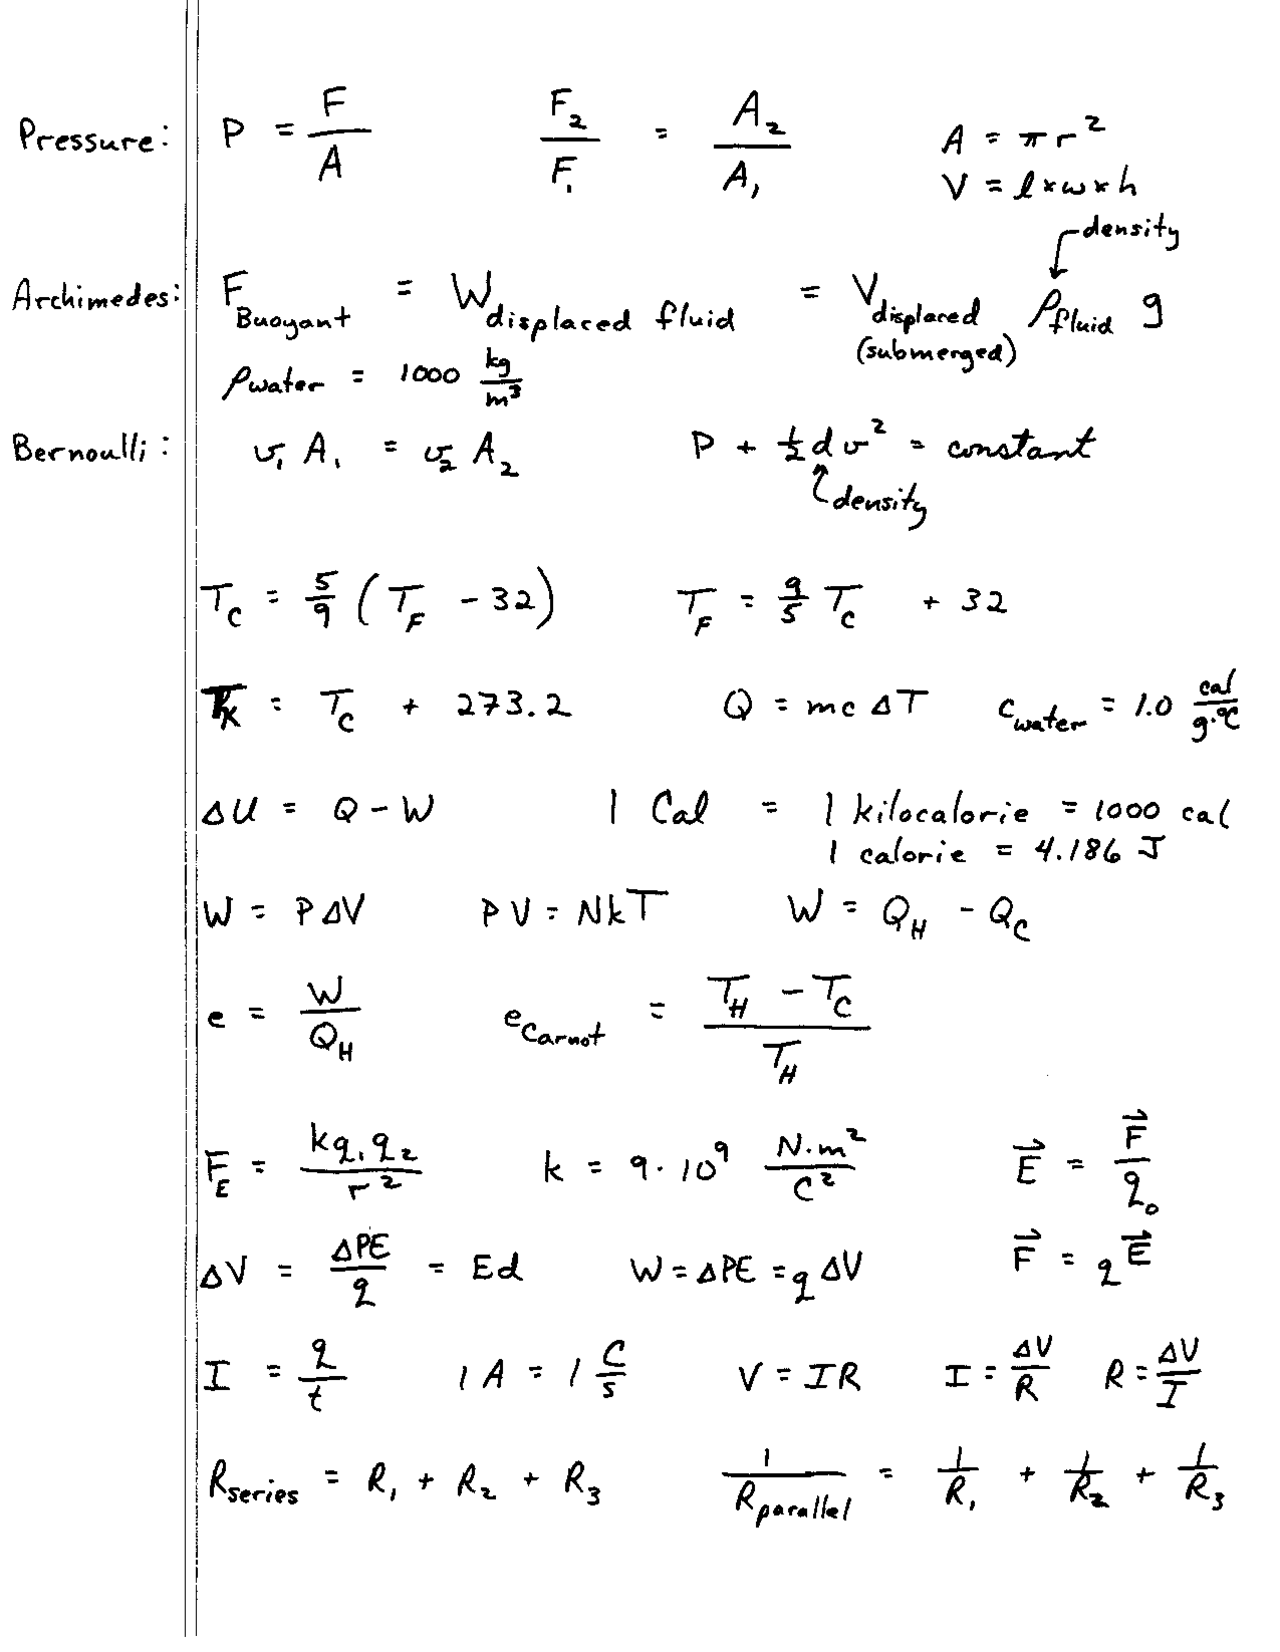 Pressure: P = F/A    F₂/F₁ = A₂/A₁    A = πr²
V = l×w×h
density
Archimedes: F_Buoyant = W_displaced fluid = V_displaced (submerged) ρ_fluid g
ρ_water = 1000 kg/m³
Bernoulli: v₁ A₁ = v₂ A₂    P + ½ d v² = constant
density
T_C = 5/9 (T_F - 32)    T_F = 9/5 T_C + 32
T_K = T_C + 273.2    Q = mcΔT    c_water = 1.0 cal/g·°C
ΔU = Q - W    1 Cal = 1 kilocalorie = 1000 cal
1 calorie = 4.186 J
W = PΔV    PV = NkT    W = Q_H - Q_C
e = W/Q_H    e_Carnot = (T_H - T_C)/T_H
F_E = kq₁q₂/r²    k = 9·10⁹ N·m²/C²    E⃗ = F⃗/q₀
ΔV = ΔPE/q = Ed    W = ΔPE = qΔV    F⃗ = qE⃗
I = q/t    1 A = 1 C/s    V = IR    I = ΔV/R    R = ΔV/I
R_series = R₁ + R₂ + R₃    1/R_parallel = 1/R₁ + 1/R₂ + 1/R₃